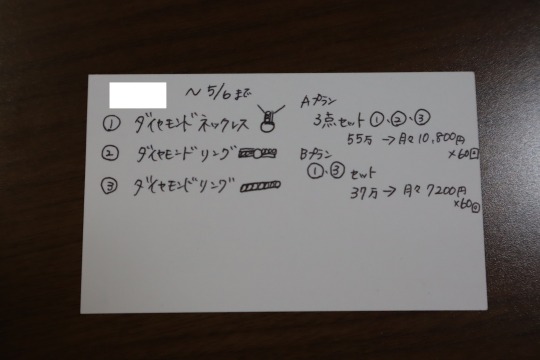 ～5/6まで
① ダイヤモンドネックレス
② ダイヤモンドリング
③ ダイヤモンドリング
Aプラン
3点セット ①、②、③
55万 → 月々10,800円
×60回
Bプラン
①、③ セット
37万 → 月々7200円
×60回